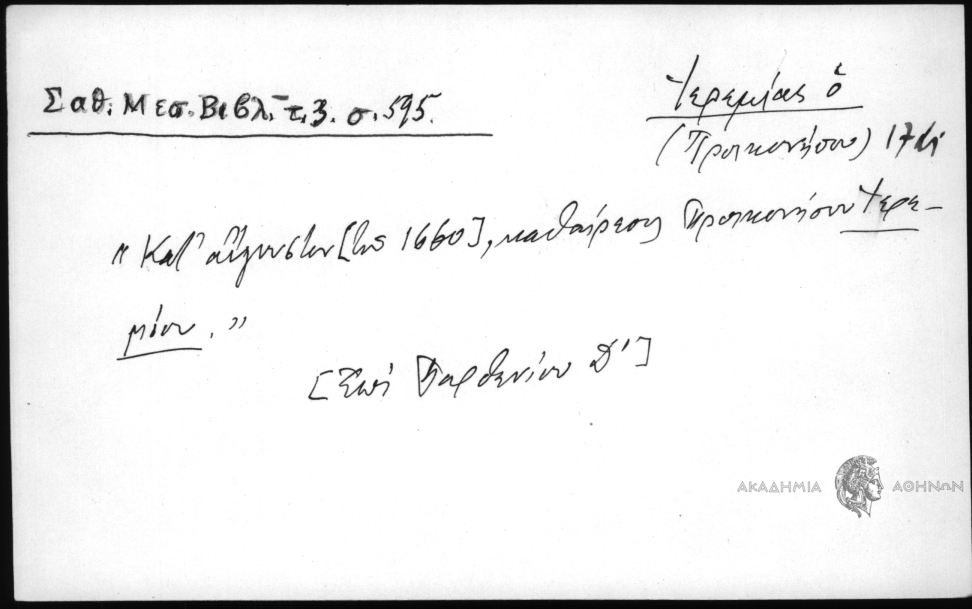 Σαθ. Μεσ. Βιβλ. τ. 3. σ. 595.
Ἱερεμίας ὁ
(Προικονήσου) 17
"Κατ' αὔγουστον [τοῦ 1660], καθαίρεσις Προικονήσου Ἱερε-
μίου."
[Ἐπὶ Παρθενίου Δ']
ΑΚΑΔΗΜΙΑ ΑΘΗΝΩΝ